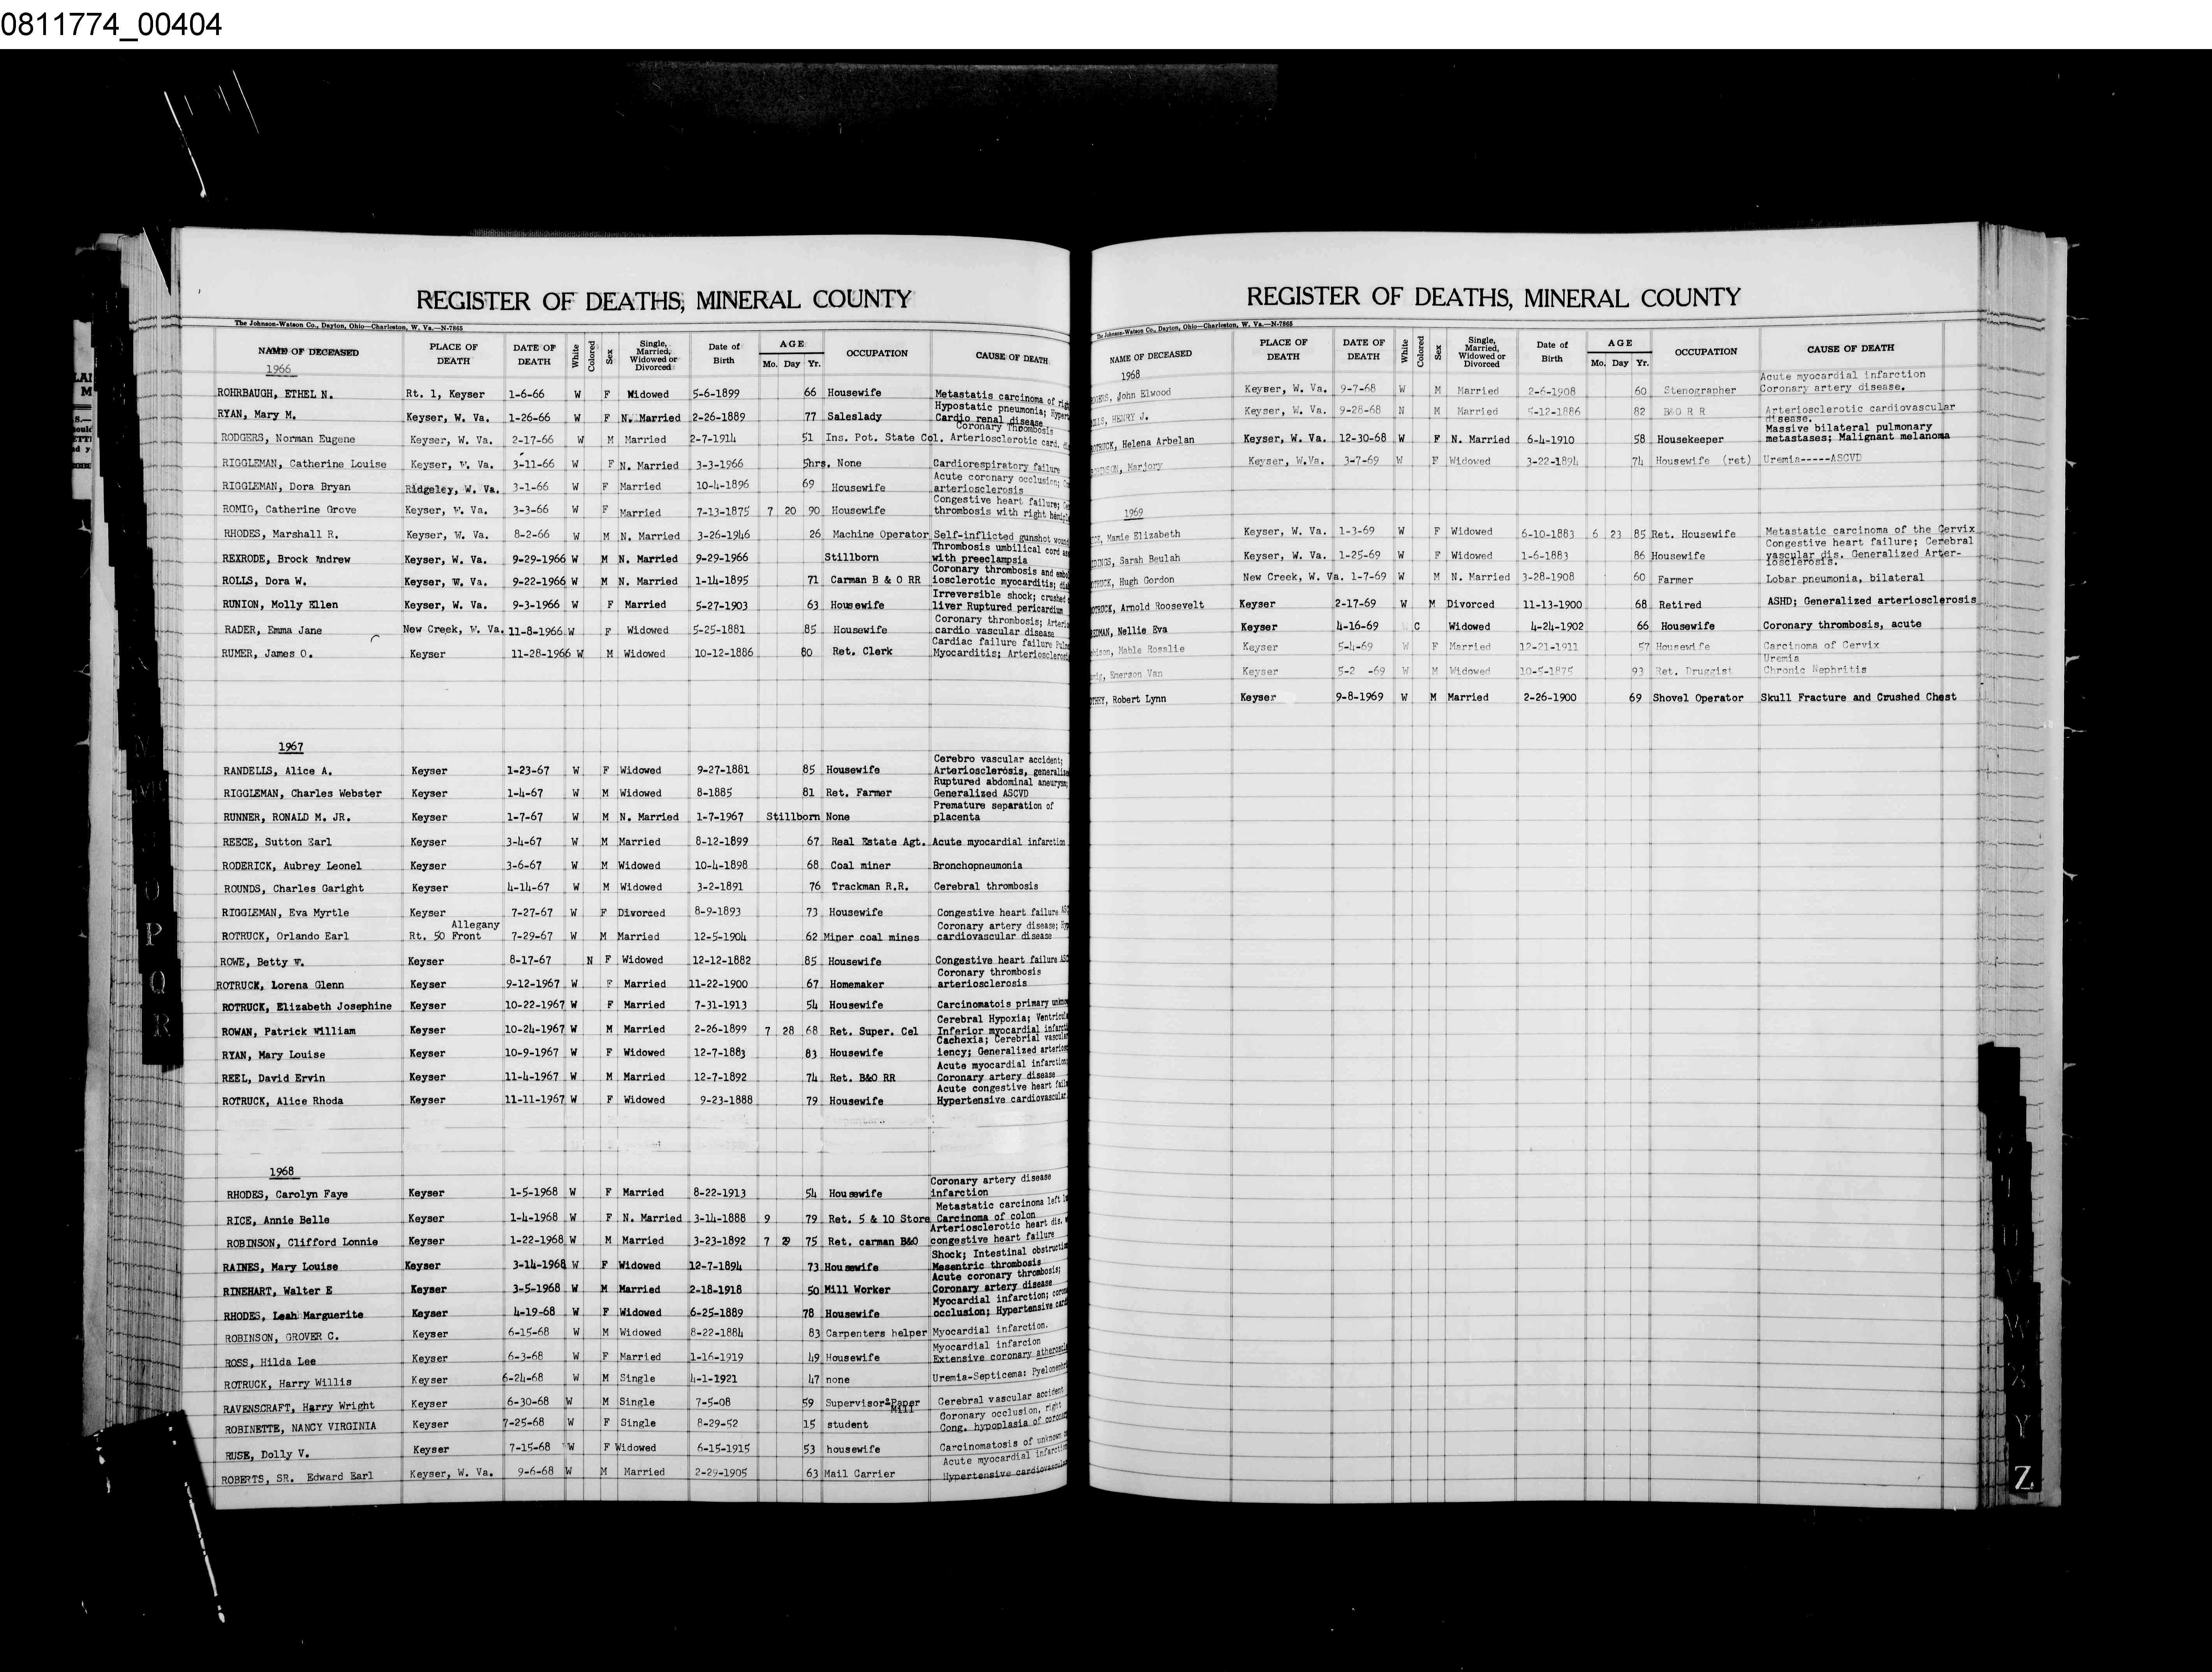 0811774_00404
REGISTER OF DEATHS, MINERAL COUNTY
The Johnson-Watson Co., Dayton, Ohio—Charleston, W. Va.—N-7865
NAME OF DECEASED PLACE OF DEATH DATE OF DEATH White Colored Sex Single, Married, Widowed or Divorced Date of Birth AGE Mo. Day Yr. OCCUPATION CAUSE OF DEATH
1966
ROHRBAUGH, ETHEL N. Rt. 1, Keyser 1-6-66 W F Widowed 5-6-1899 66 Housewife Metastatis carcinoma of
RYAN, Mary M. Keyser, W. Va. 1-26-66 W F N. Married 2-26-1889 77 Saleslady Hypostatic pneumonia; Cardio renal disease
RODGERS, Norman Eugene Keyser, W. Va. 2-17-66 W M Married 2-7-1914 51 Ins. Pot. State Col. Coronary Thrombosis Arteriosclerotic card.
RIGGLEMAN, Catherine Louise Keyser, W. Va. 3-11-66 W F N. Married 3-3-1966 5hrs. None Cardiorespiratory failure
RIGGLEMAN, Dora Bryan Ridgeley, W. Va. 3-1-66 W F Married 10-4-1896 69 Housewife Acute coronary occlusion; arteriosclerosis
ROMIG, Catherine Grove Keyser, W. Va. 3-3-66 W F Married 7-13-1875 7 20 90 Housewife Congestive heart failure; thrombosis with right
RHODES, Marshall R. Keyser, W. Va. 8-2-66 W M N. Married 3-26-1946 26 Machine Operator Self-inflicted gunshot
REXRODE, Brock Andrew Keyser, W. Va. 9-29-1966 W M N. Married 9-29-1966 Stillborn Thrombosis umbilical cord with preeclampsia
ROLLS, Dora W. Keyser, W. Va. 9-22-1966 W M N. Married 1-14-1895 71 Carman B & O RR Coronary thrombosis and iosclerotic myocarditis;
RUNION, Molly Ellen Keyser, W. Va. 9-3-1966 W F Married 5-27-1903 63 Housewife Irreversible shock; crushed liver Ruptured pericardium
RADER, Emma Jane New Creek, W. Va. 11-8-1966 W F Widowed 5-25-1881 85 Housewife Coronary thrombosis; cardio vascular disease
RUMER, James O. Keyser 11-28-1966 W M Widowed 10-12-1886 80 Ret. Clerk Cardiac failure failure Myocarditis;
1967
RANDELLS, Alice A. Keyser 1-23-67 W F Widowed 9-27-1881 85 Housewife Cerebro vascular accident; Arteriosclerosis,
RIGGLEMAN, Charles Webster Keyser 1-4-67 W M Widowed 8-1885 81 Ret. Farmer Ruptured abdominal Generalized ASCVD
RUNNER, RONALD M. JR. Keyser 1-7-67 W M N. Married 1-7-1967 Stillborn None Premature separation of placenta
REECE, Sutton Earl Keyser 3-4-67 W M Married 8-12-1899 67 Real Estate Agt. Acute myocardial infarction
RODERICK, Aubrey Leonel Keyser 3-6-67 W M Widowed 10-4-1898 68 Coal miner Bronchopneumonia
ROUNDS, Charles Garight Keyser 4-14-67 W M Widowed 3-2-1891 76 Trackman R.R. Cerebral thrombosis
RIGGLEMAN, Eva Myrtle Keyser 7-27-67 W F Divorced 8-9-1893 73 Housewife Congestive heart failure
ROTRUCK, Orlando Earl Rt. 50 Allegany Front 7-29-67 W M Married 12-5-1904 62 Miner coal mines Coronary artery disease; cardiovascular disease
ROWE, Betty W. Keyser 8-17-67 N F Widowed 12-12-1882 85 Housewife Congestive heart failure
ROTRUCK, Lorena Glenn Keyser 9-12-1967 W F Married 11-22-1900 67 Homemaker Coronary thrombosis arteriosclerosis
ROTRUCK, Elizabeth Josephine Keyser 10-22-1967 W F Married 7-31-1913 54 Housewife Carcinomatois primary
ROWAN, Patrick William Keyser 10-24-1967 W M Married 2-26-1899 7 28 68 Ret. Super. Cel Cerebral Hypoxia; Inferior myocardial
RYAN, Mary Louise Keyser 10-9-1967 W F Widowed 12-7-1883 83 Housewife Cachexia; Cerebrial iency; Generalized
REEL, David Ervin Keyser 11-4-1967 W M Married 12-7-1892 74 Ret. B&O RR Acute myocardial infarction Coronary artery disease
ROTRUCK, Alice Rhoda Keyser 11-11-1967 W F Widowed 9-23-1888 79 Housewife Acute congestive heart Hypertensive cardiovascular
1968
RHODES, Carolyn Faye Keyser 1-5-1968 W F Married 8-22-1913 54 Housewife Coronary artery disease infarction
RICE, Annie Belle Keyser 1-4-1968 W F N. Married 3-14-1888 9 79 Ret. 5 & 10 Store Metastatic carcinoma left Carcinoma of colon
ROBINSON, Clifford Lonnie Keyser 1-22-1968 W M Married 3-23-1892 7 29 75 Ret. carman B&O Arteriosclerotic heart dis. congestive heart failure
RAINES, Mary Louise Keyser 3-14-1968 W F Widowed 12-7-1894 73 Housewife Shock; Intestinal Mesentric thrombosis
RINEHART, Walter E Keyser 3-5-1968 W M Married 2-18-1918 50 Mill Worker Acute coronary thrombosis; Coronary artery disease
RHODES, Leah Marguerite Keyser 4-19-68 W F Widowed 6-25-1889 78 Housewife Myocardial infarction; occlusion; Hypertensive
ROBINSON, GROVER C. Keyser 6-15-68 W M Widowed 8-22-1884 83 Carpenters helper Myocardial infarction.
ROSS, Hilda Lee Keyser 6-3-68 W F Married 1-16-1919 49 Housewife Myocardial infarcion Extensive coronary
ROTRUCK, Harry Willis Keyser 6-24-68 W M Single 4-1-1921 47 none Uremia-Septicema:
RAVENSCRAFT, Harry Wright Keyser 6-30-68 W M Single 7-5-08 59 Supervisor-Paper Mill Cerebral vascular accident
ROBINETTE, NANCY VIRGINIA Keyser 7-25-68 W F Single 8-29-52 15 student Coronary occlusion, right Cong. hypoplasia of
RUSE, Dolly V. Keyser 7-15-68 W F Widowed 6-15-1915 53 housewife Carcinomatosis of unknown
ROBERTS, SR. Edward Earl Keyser, W. Va. 9-6-68 W M Married 2-29-1905 63 Mail Carrier Acute myocardial Hypertensive
P
Q
R
REGISTER OF DEATHS, MINERAL COUNTY
The Johnson-Watson Co., Dayton, Ohio—Charleston, W. Va.—N-7865
NAME OF DECEASED PLACE OF DEATH DATE OF DEATH White Colored Sex Single, Married, Widowed or Divorced Date of Birth AGE Mo. Day Yr. OCCUPATION CAUSE OF DEATH
1968
John Elwood Keyser, W. Va. 9-7-68 W M Married 2-6-1908 60 Stenographer Acute myocardial infarction Coronary artery disease.
HENRY J. Keyser, W. Va. 9-28-68 N M Married 5-12-1886 82 B&O R R Arteriosclerotic cardiovascular disease.
Helena Arbelan Keyser, W. Va. 12-30-68 W F N. Married 6-4-1910 58 Housekeeper Massive bilateral pulmonary metastases; Malignant melanoma
Marjory Keyser, W.Va. 3-7-69 W F Widowed 3-22-1894 74 Housewife (ret) Uremia-----ASCVD
1969
Mamie Elizabeth Keyser, W. Va. 1-3-69 W F Widowed 6-10-1883 6 23 85 Ret. Housewife Metastatic carcinoma of the Cervix
Sarah Beulah Keyser, W. Va. 1-25-69 W F Widowed 1-6-1883 86 Housewife Congestive heart failure; Cerebral vascular dis. Generalized Arteriosclerosis.
Hugh Gordon New Creek, W. Va. 1-7-69 W M N. Married 3-28-1908 60 Farmer Lobar pneumonia, bilateral
Arnold Roosevelt Keyser 2-17-69 W M Divorced 11-13-1900 68 Retired ASHD; Generalized arteriosclerosis
Nellie Eva Keyser 4-16-69 C Widowed 4-24-1902 66 Housewife Coronary thrombosis, acute
Mable Rosalie Keyser 5-4-69 W F Married 12-21-1911 57 Housewife Carcinoma of Cervix
Emerson Van Keyser 5-2 -69 W M Widowed 10-5-1875 93 Ret. Druggist Uremia Chronic Nephritis
Robert Lynn Keyser 9-8-1969 W M Married 2-26-1900 69 Shovel Operator Skull Fracture and Crushed Chest
W
X
Y
Z